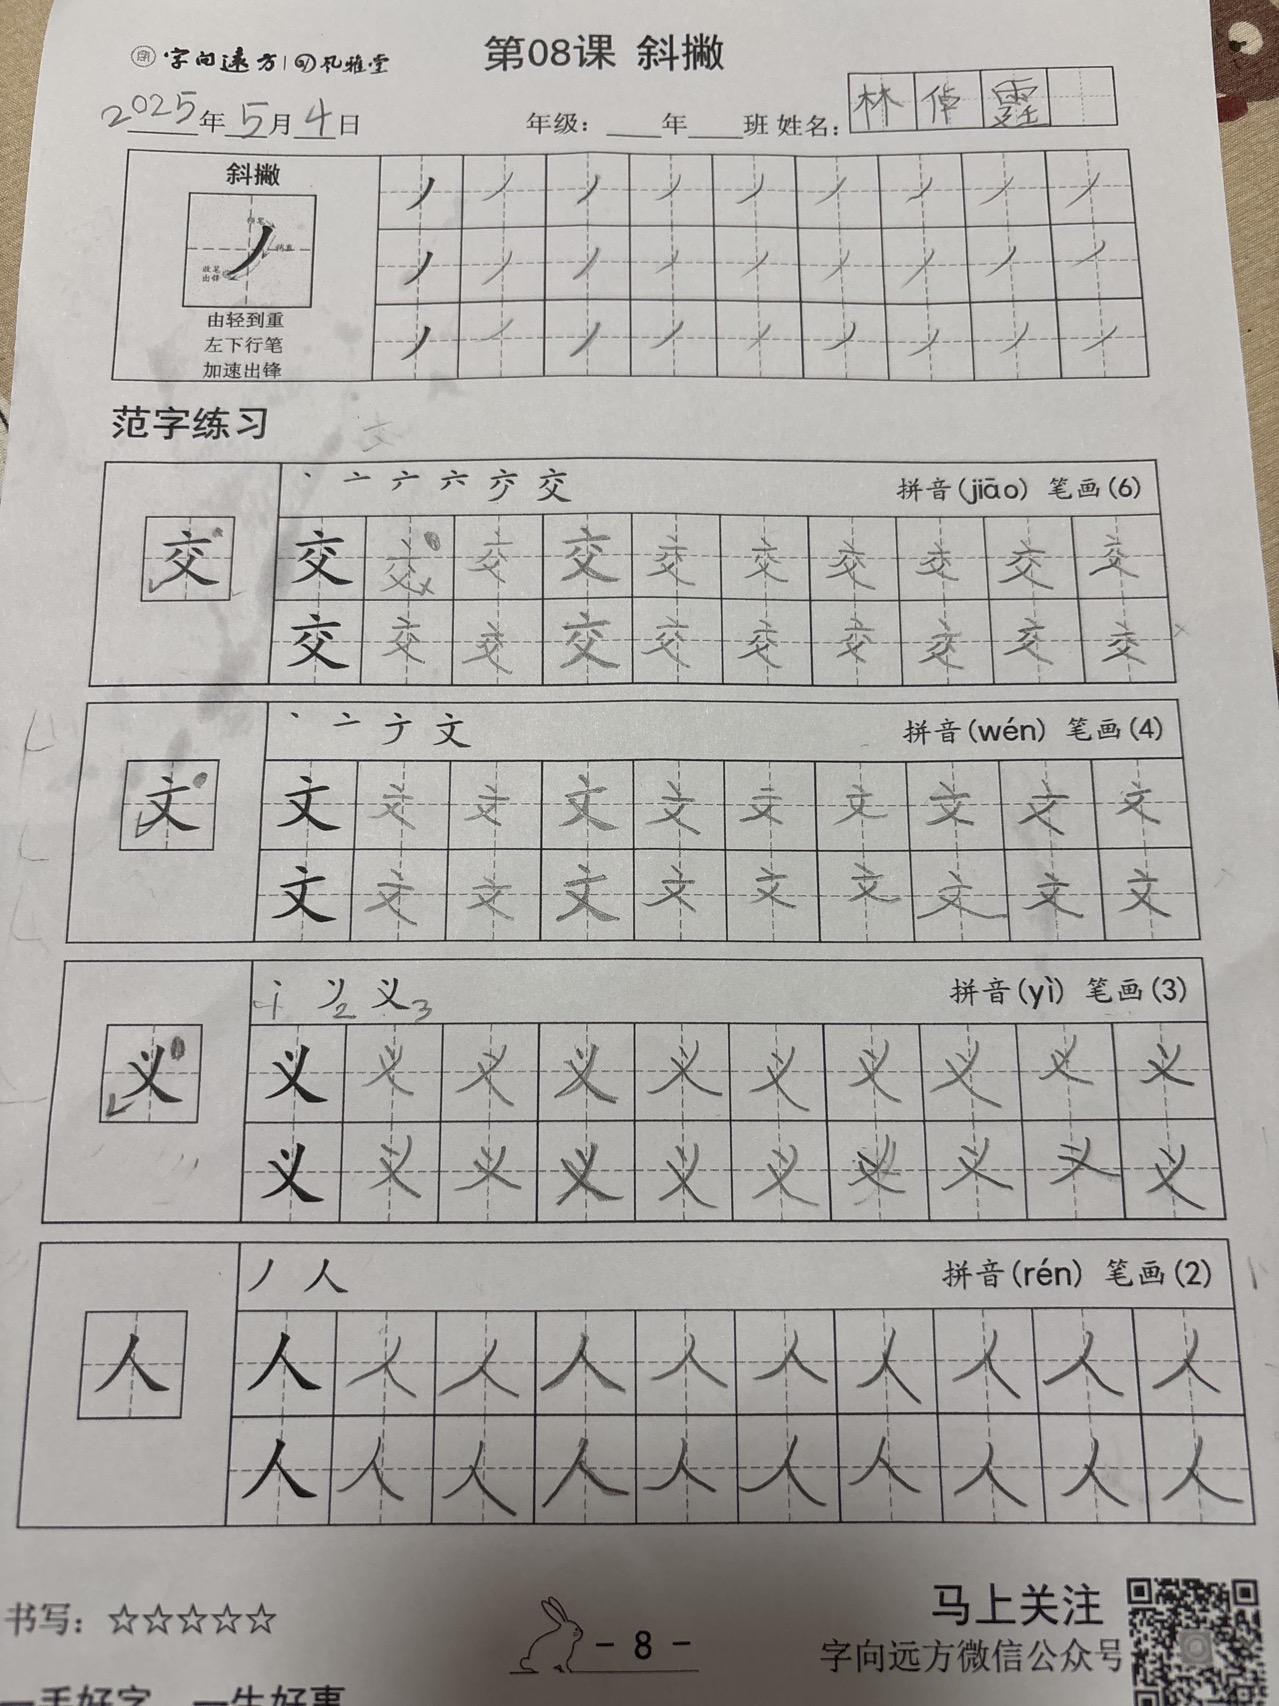 字向远方 风雅堂
第08课 斜撇
2025年5月4日 年级：____年____班 姓名：林倬霆
斜撇
由轻到重
左下行笔
加速出锋
丿 丿 丿 丿 丿 丿 丿 丿 丿
丿 丿 丿 丿 丿 丿 丿 丿 丿
丿 丿 丿 丿 丿 丿 丿 丿 丿
范字练习
交
拼音(jiāo) 笔画(6)
交 交 交 交 交 交 交 交 交 交
交 交 交 交 交 交 交 交 交 交
文
拼音(wén) 笔画(4)
文 文 文 文 文 文 文 文 文 文
文 文 文 文 文 文 文 文 文 文
义
1 2 义3
拼音(yì) 笔画(3)
义 义 义 义 义 义 义 义 义 义
义 义 义 义 义 义 义 义 义 义
人
丿 人
拼音(rén) 笔画(2)
人 人 人 人 人 人 人 人 人 人
人 人 人 人 人 人 人 人 人 人
书写：☆☆☆☆☆
- 8 -
马上关注
字向远方微信公众号
一手好字 一生好事